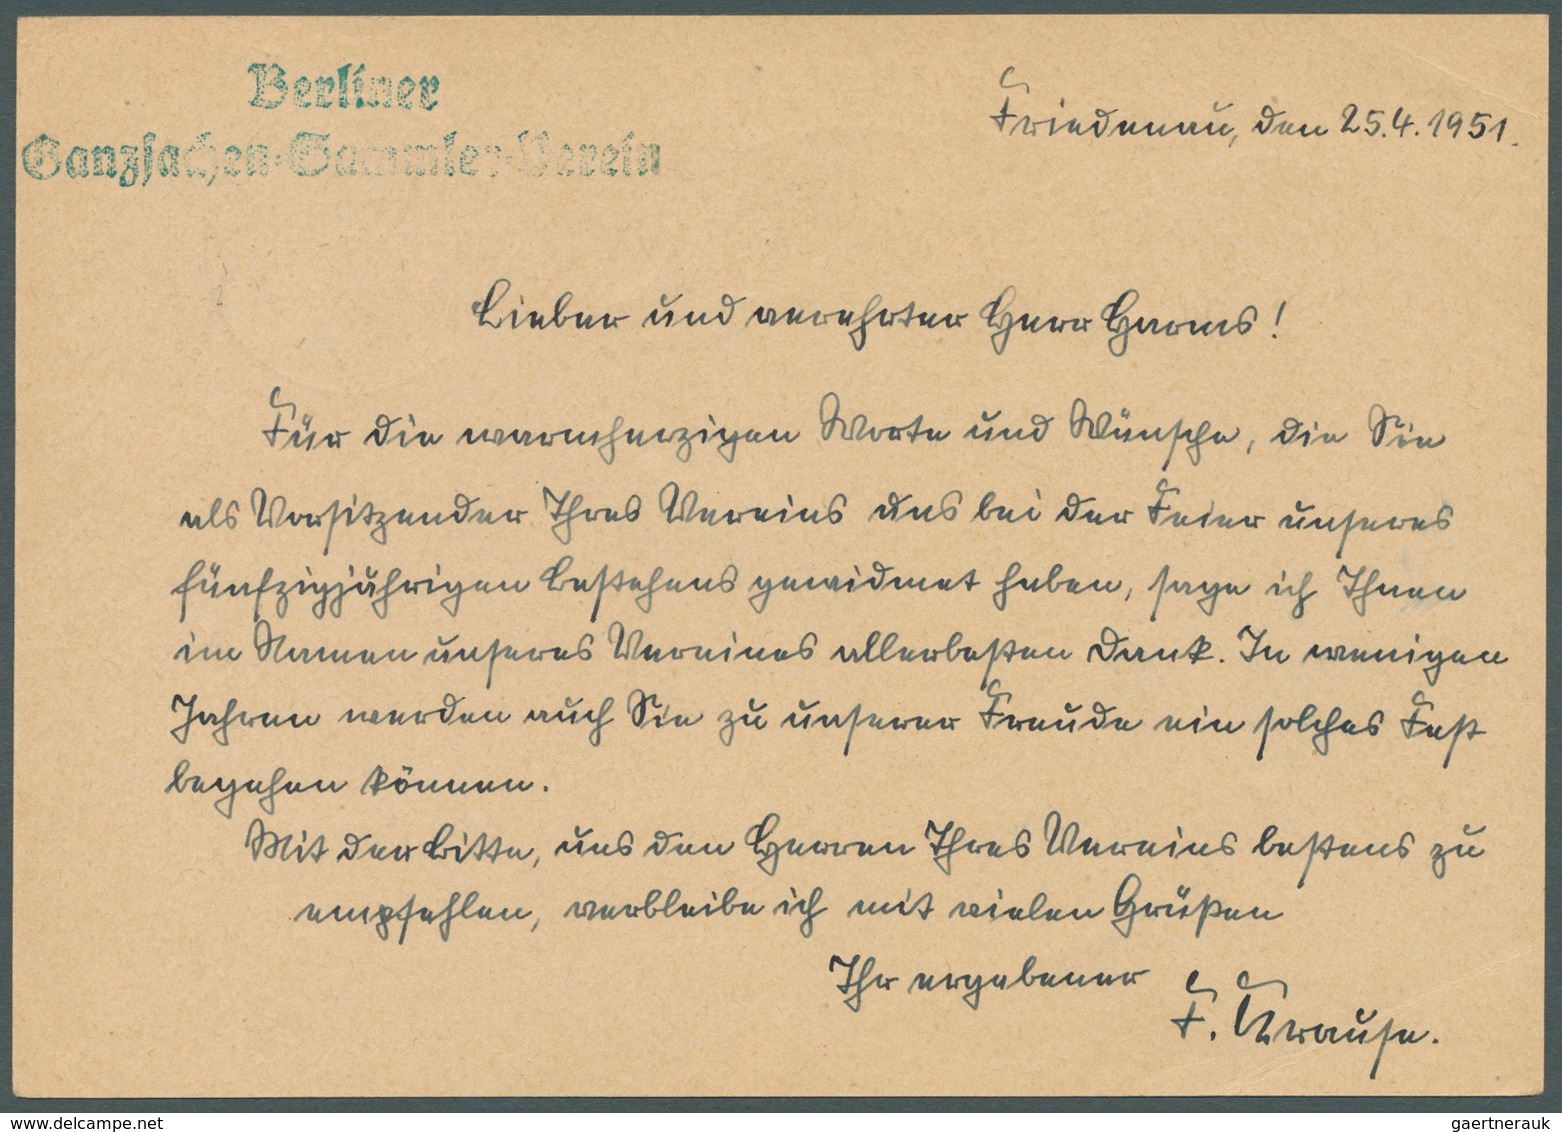 Berliner
Ganzsachen-Sammler-Verein
Friedenau, den 25.4.1951.
Lieber und verehrter Herr Harms!
Für die warmherzigen Worte und Wünsche, die Sie
als Vorsitzender Ihres Vereins uns bei der Feier unseres
fünfzigjährigen Bestehens gewidmet haben, sage ich Ihnen
im Namen unseres Vereines allerbesten Dank. In wenigen
Jahren werden auch Sie zu unserer Freude ein solches Fest
begehen können.
Mit der Bitte, uns den Herren Ihres Vereins bestens zu
empfehlen, verbleibe ich mit vielen Grüßen
Ihr ergebener
F. Krause.
gaertnerauk